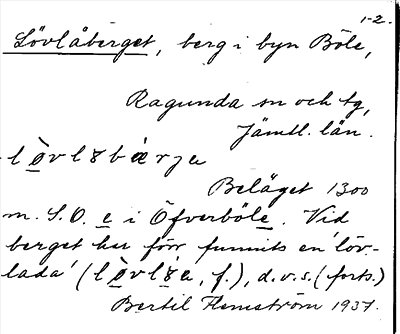 1-2.
Lövlåberget, berg i byn Böle,
Ragunda sn och tg,
Jämtl. län.
Beläget 1300
m. S.O. e i Öfverböle. Vid
berget har förr funnits en 'löv-
lada' (l, f.), d.v.s. (forts.)
Bertil Flemström 1937.